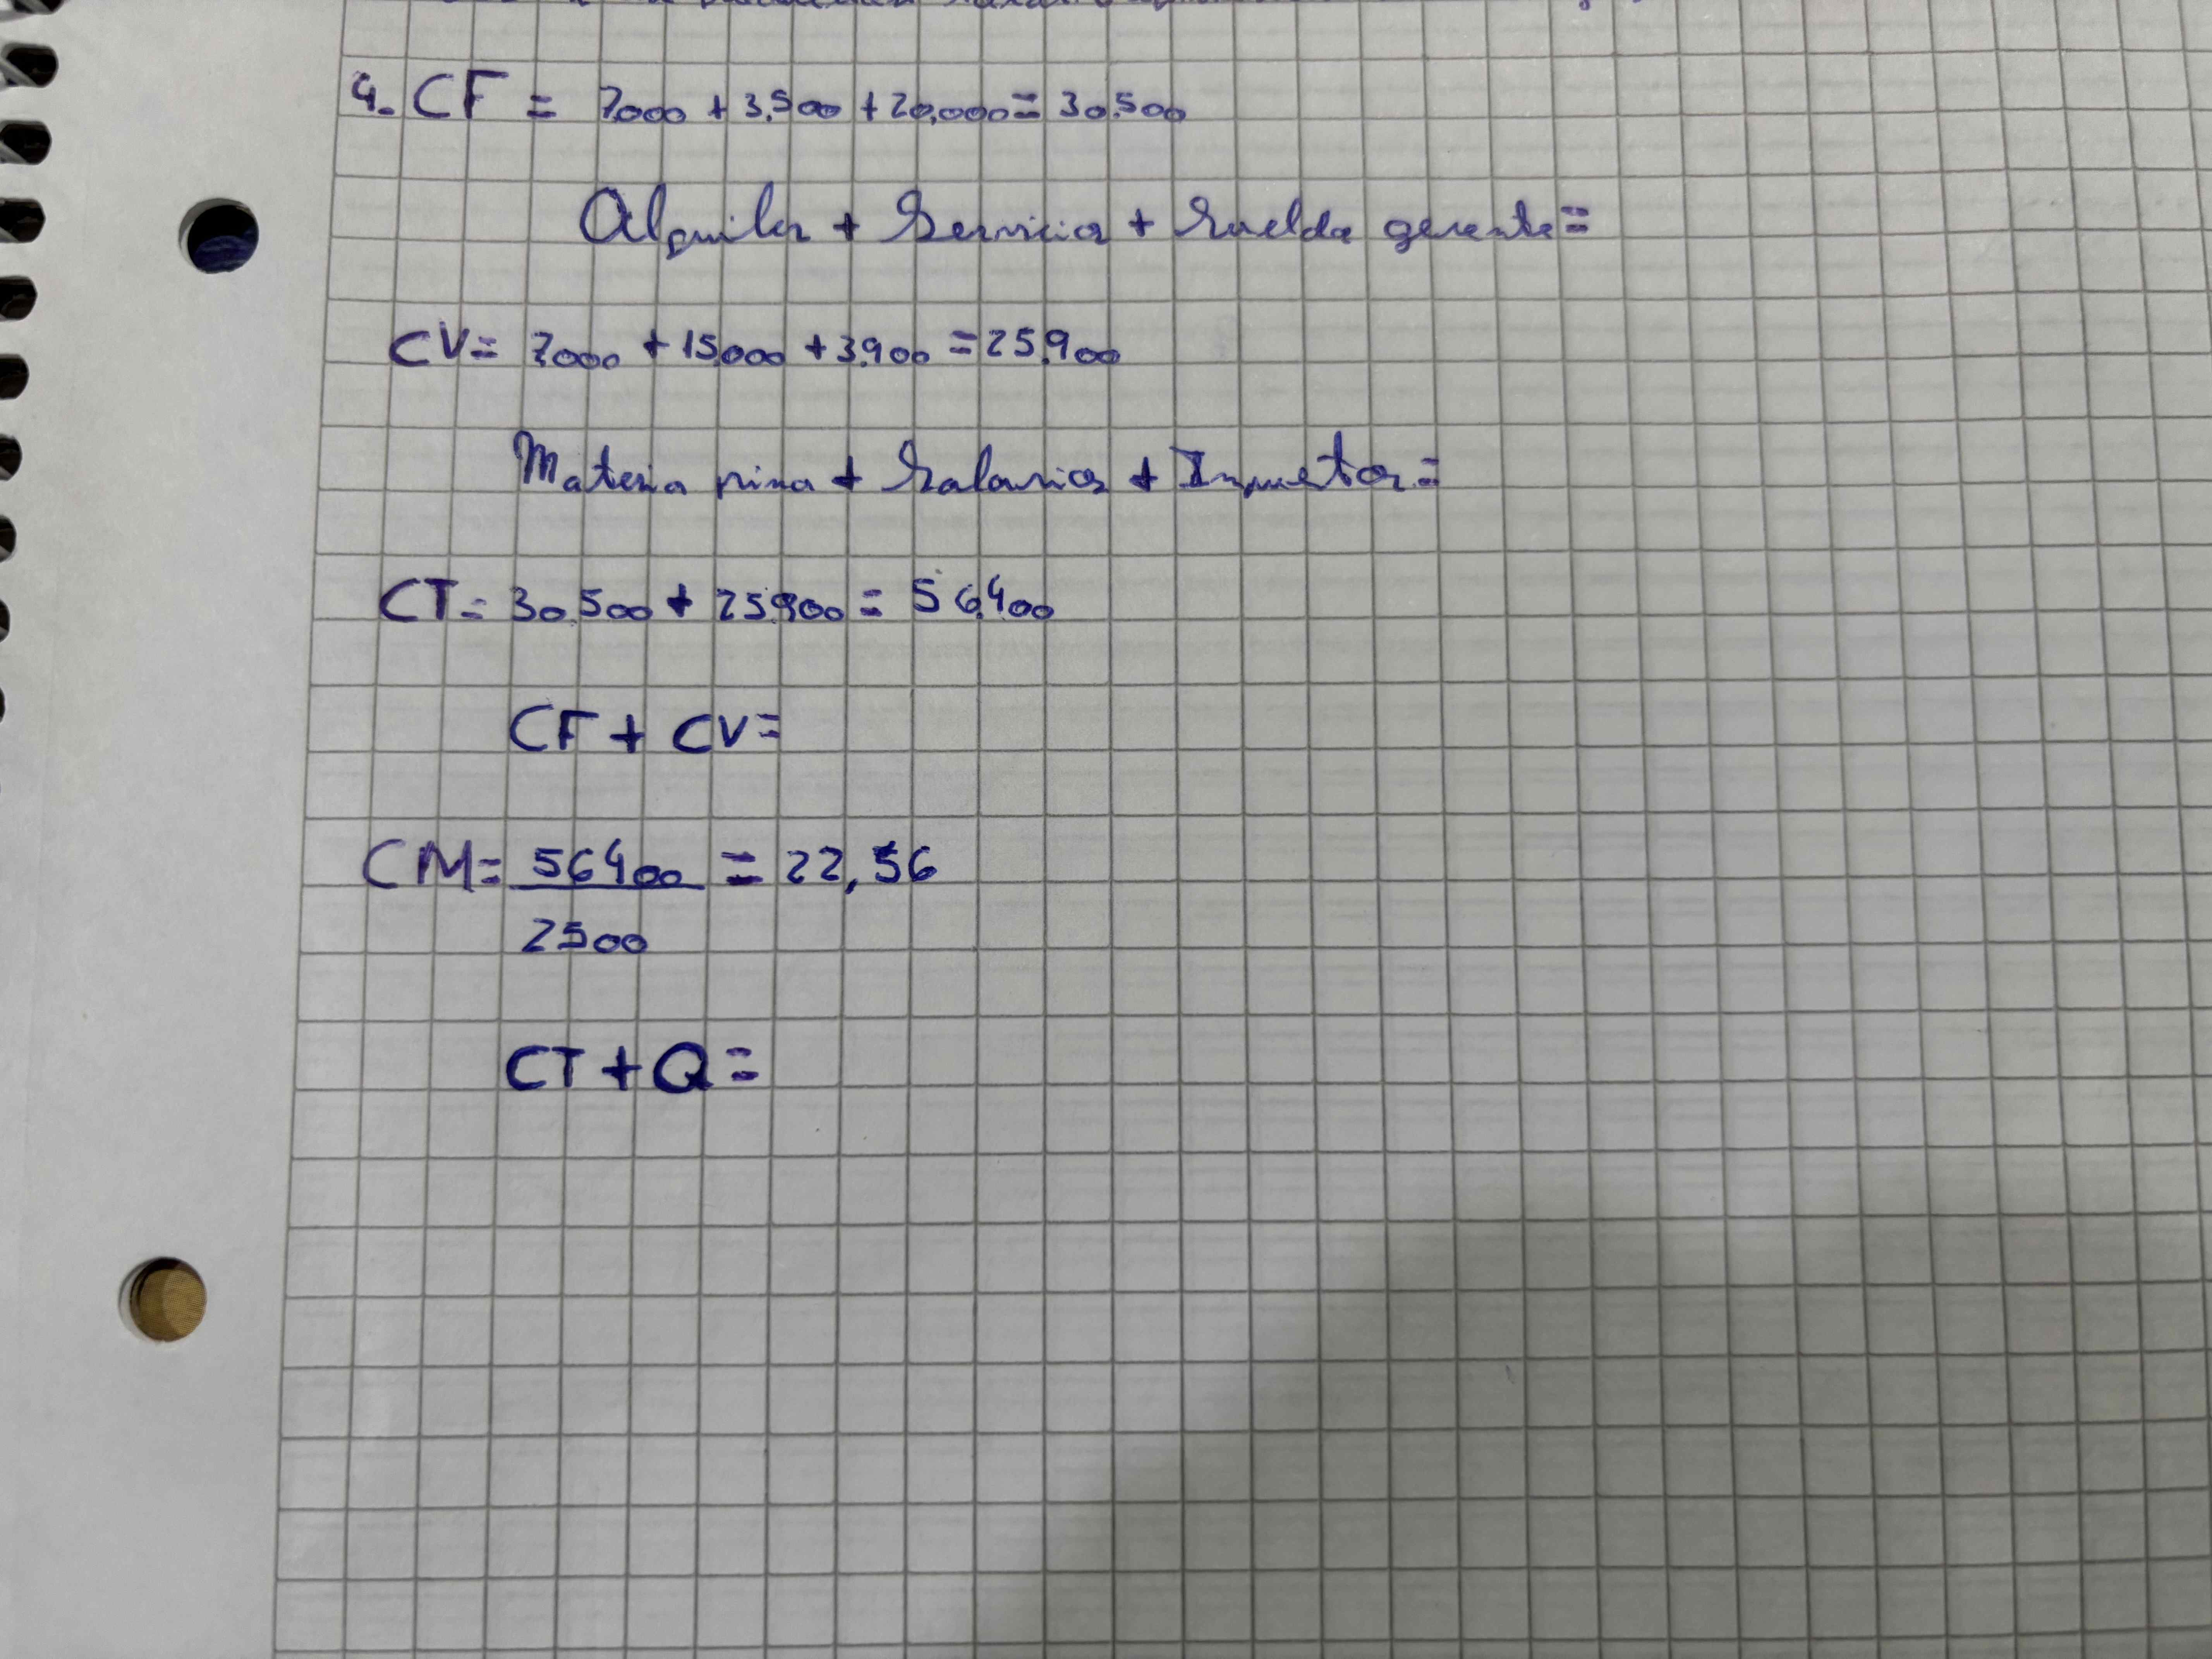 4. CF = 7.000 + 3.500 + 20.000 = 30.500
Alquiler + Servicios + Sueldo gerente =
CV = 7.000 + 15.000 + 3.900 = 25.900
Materia prima + Salarios + Impuestos =
CT = 30.500 + 25.900 = 56.400
CF + CV =
CM = 56400 = 22,56
2500
CT + Q =